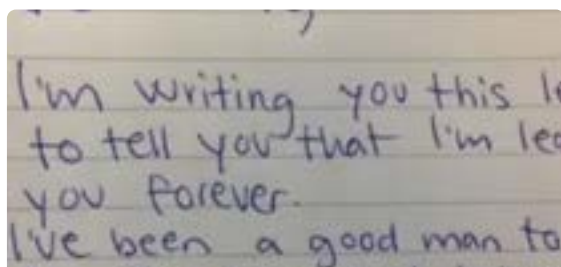 I'm writing you this le
to tell you that I'm lea
you forever.
I've been a good man to